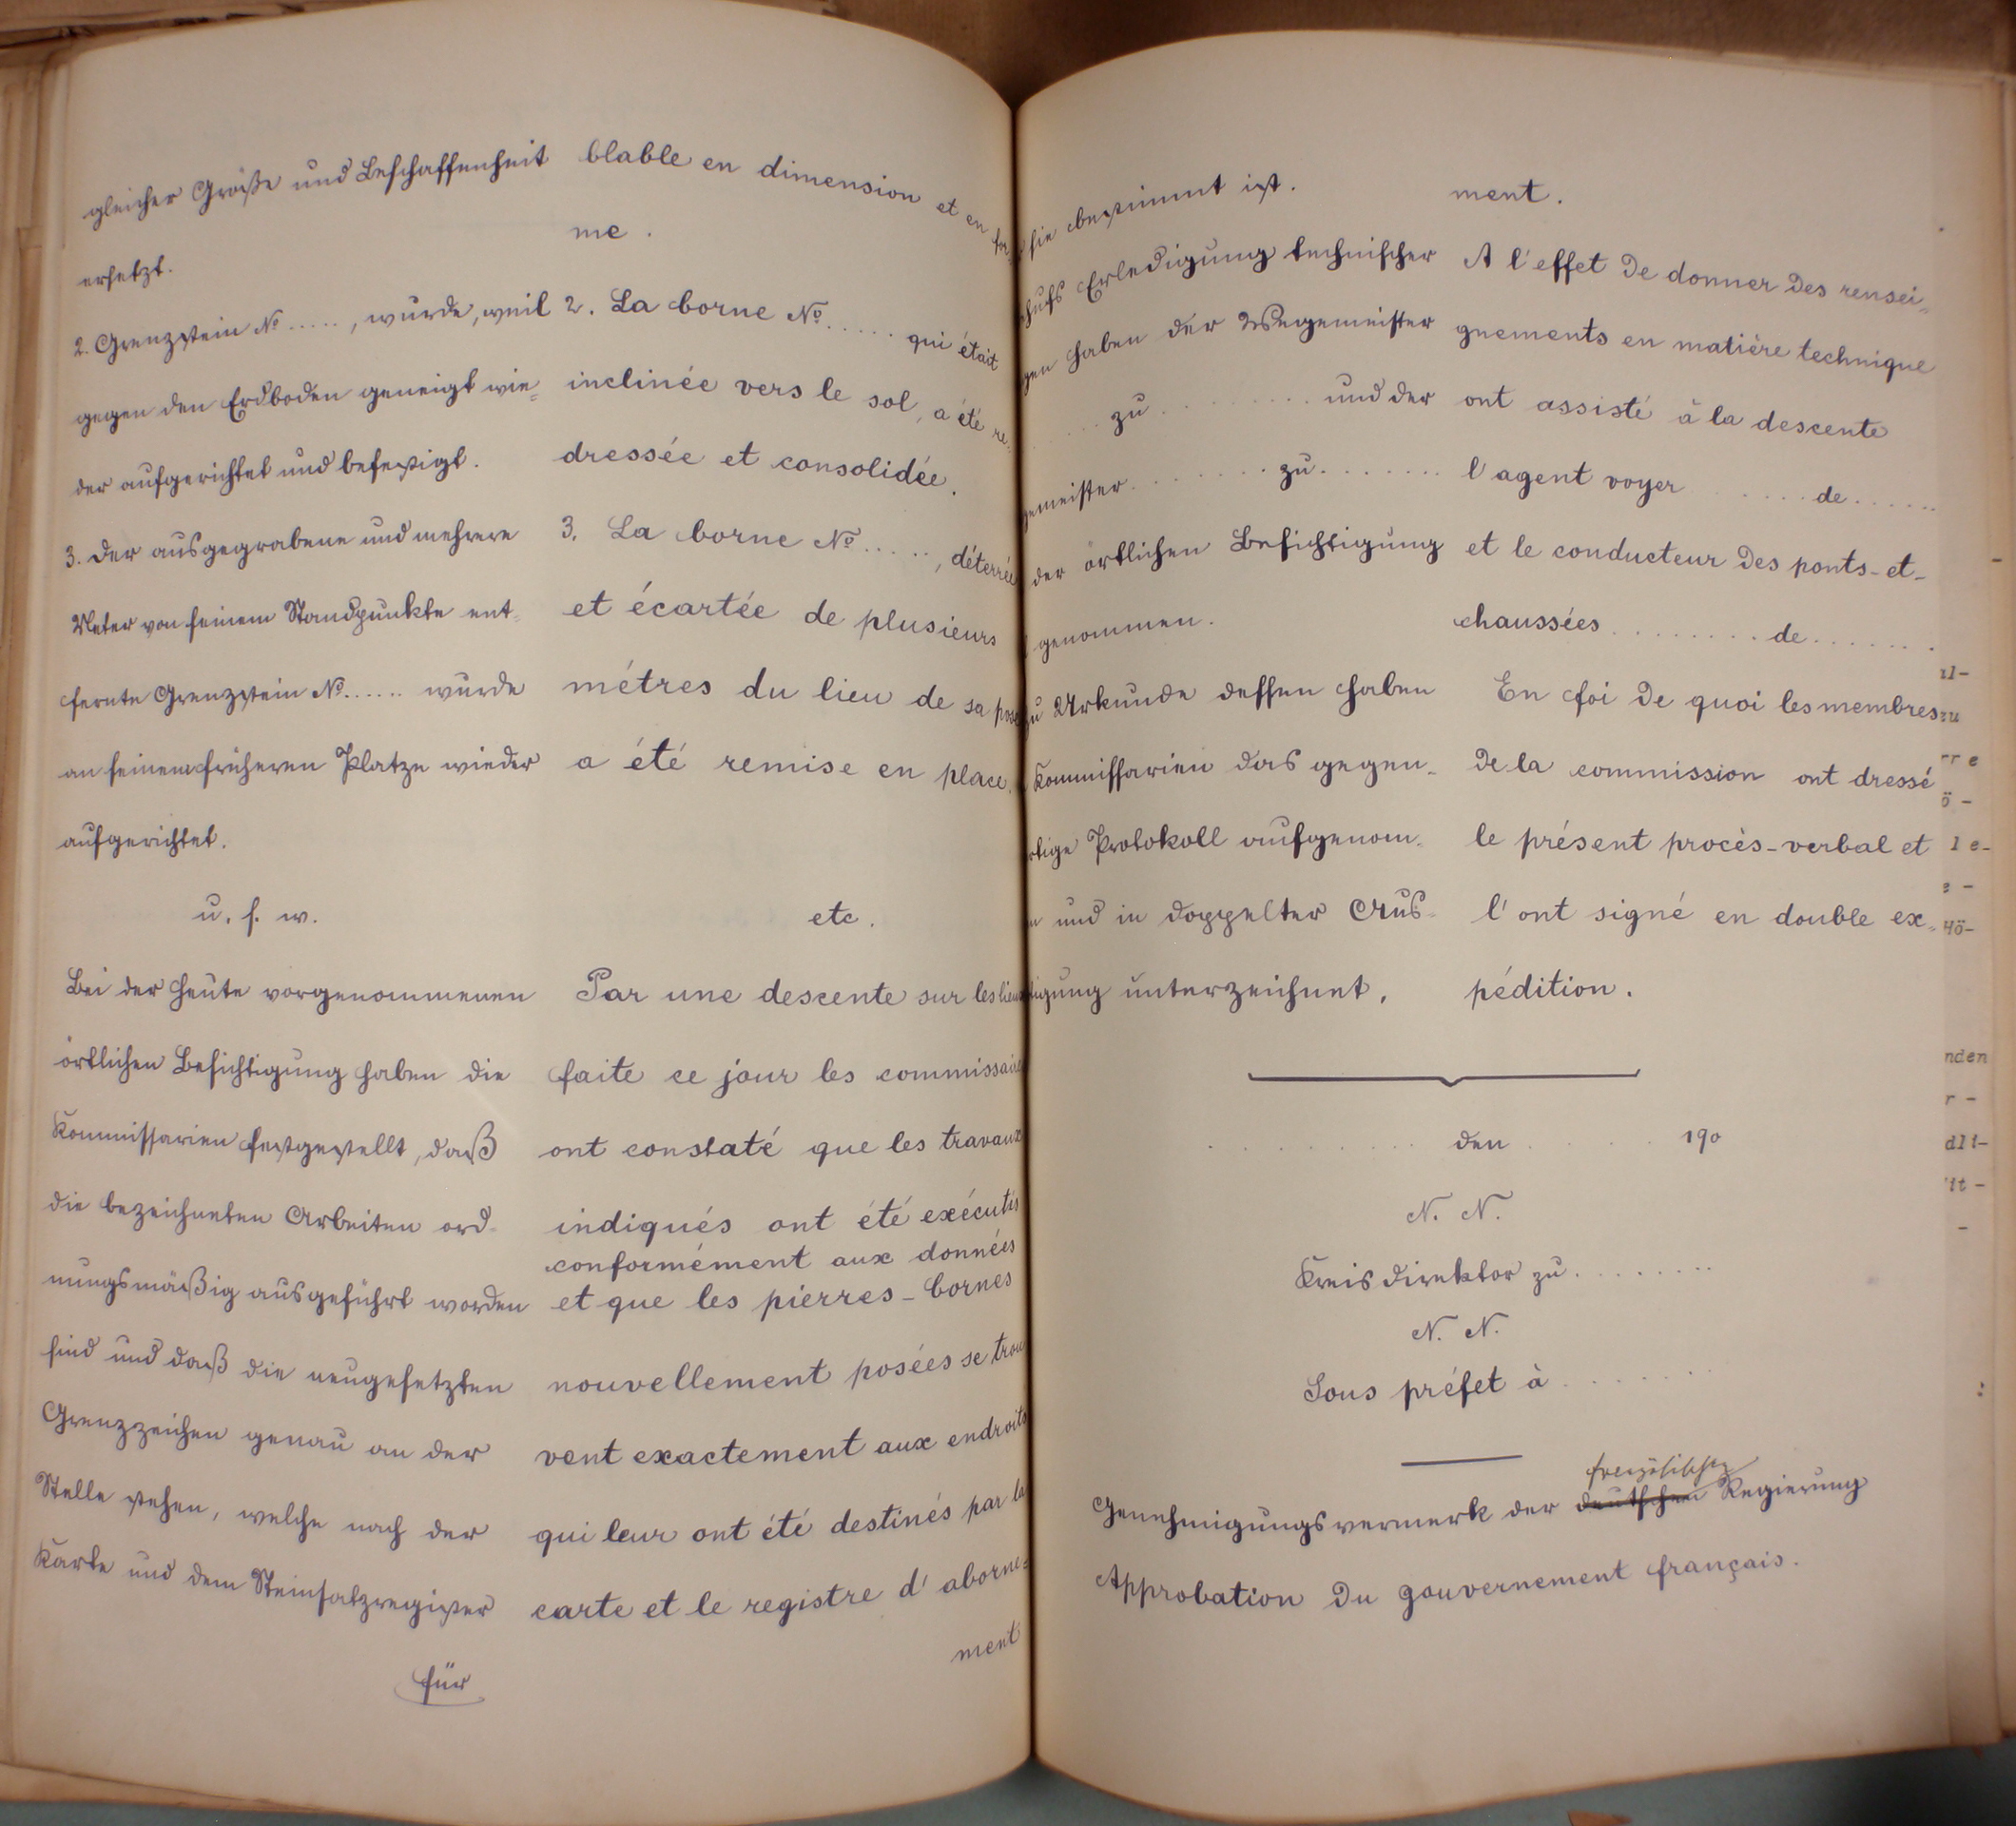 gleicher Größe und Beschaffenheit
ersetzt.
2. Grenzstein No ....., wurde, weil
gegen den Erdboden geneigt wie=
der aufgerichtet und befestigt.
3. der ausgegrabene und mehrere
Meter von seinem Standpunkte ent-
fernte Grenzstein No ...... wurde
an seinem früheren Platze wieder
aufgerichtet.
u. s. w.
Bei der heute vorgenommenen
örtlichen Besichtigung haben die
Kommissarien festgestellt, daß
die bezeichneten Arbeiten ord-
nungsmäßig ausgeführt worden
sind und daß die neugesetzten
Grenzzeichen genau an der
Stelle stehen, welche nach der
Karte und dem Steinsatzregister
für
blable en dimension et en for-
me.
2. La borne No ...... qui était
inclinée vers le sol, a été re-
dressée et consolidée.
3. La borne No ......, déterrée
et écartée de plusieurs
métres du lieu de sa pose
a été remise en place.
etc.
Par une descente sur les lieux
faite ce jour les commissaires
ont constaté que les travaux
indiqués ont été exécutés
conformément aux données
et que les pierres-bornes
nouvellement posées se trou
vent exactement aux endroits
qui leur ont été destinés par la
carte et le registre d'aborne=
ment
sie bestimmt ist.
hufs Erledigung technischer
gen haben der Wegemeister
...... zu ......... und der
gemeister ......... zu ........
der örtlichen Besichtigung
genommen.
zu Urkunde dessen haben
Kommissarien das gegen-
rtige Protokoll aufgenom-
n und in doppelter Aus-
tigung unterzeichnet.
ment.
A l'effet de donner des rensei=
gnements en matière technique
ont assisté à la descente
l'agent voyer ...... de ......
et le conducteur des ponts-et-
chaussées ......... de .......
En foi de quoi les membres
de la commission ont dressé
le présent procès-verbal et
l'ont signé en double ex=
pédition.
.......... den ...... 190
N. N.
Kreisdirektor zu ........
N. N.
Sous préfet à .......
französischen
Genehmigungsvermerk der deutschen Regierung
Approbation du gouvernement français.
zu
nden